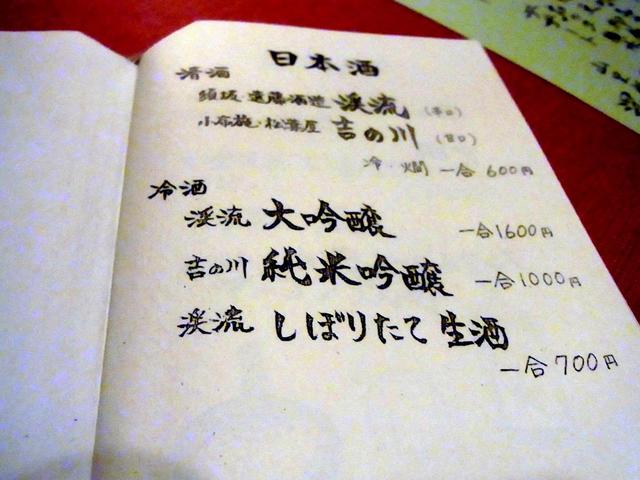 日本酒
清酒
須坂・遠藤酒造 渓流 (辛口)
小布施・松葉屋 吉の川 (甘口)
冷・燗 一合 600円
冷酒
渓流 大吟醸 一合1600円
吉の川 純米吟醸 一合1000円
渓流 しぼりたて 生酒
一合700円